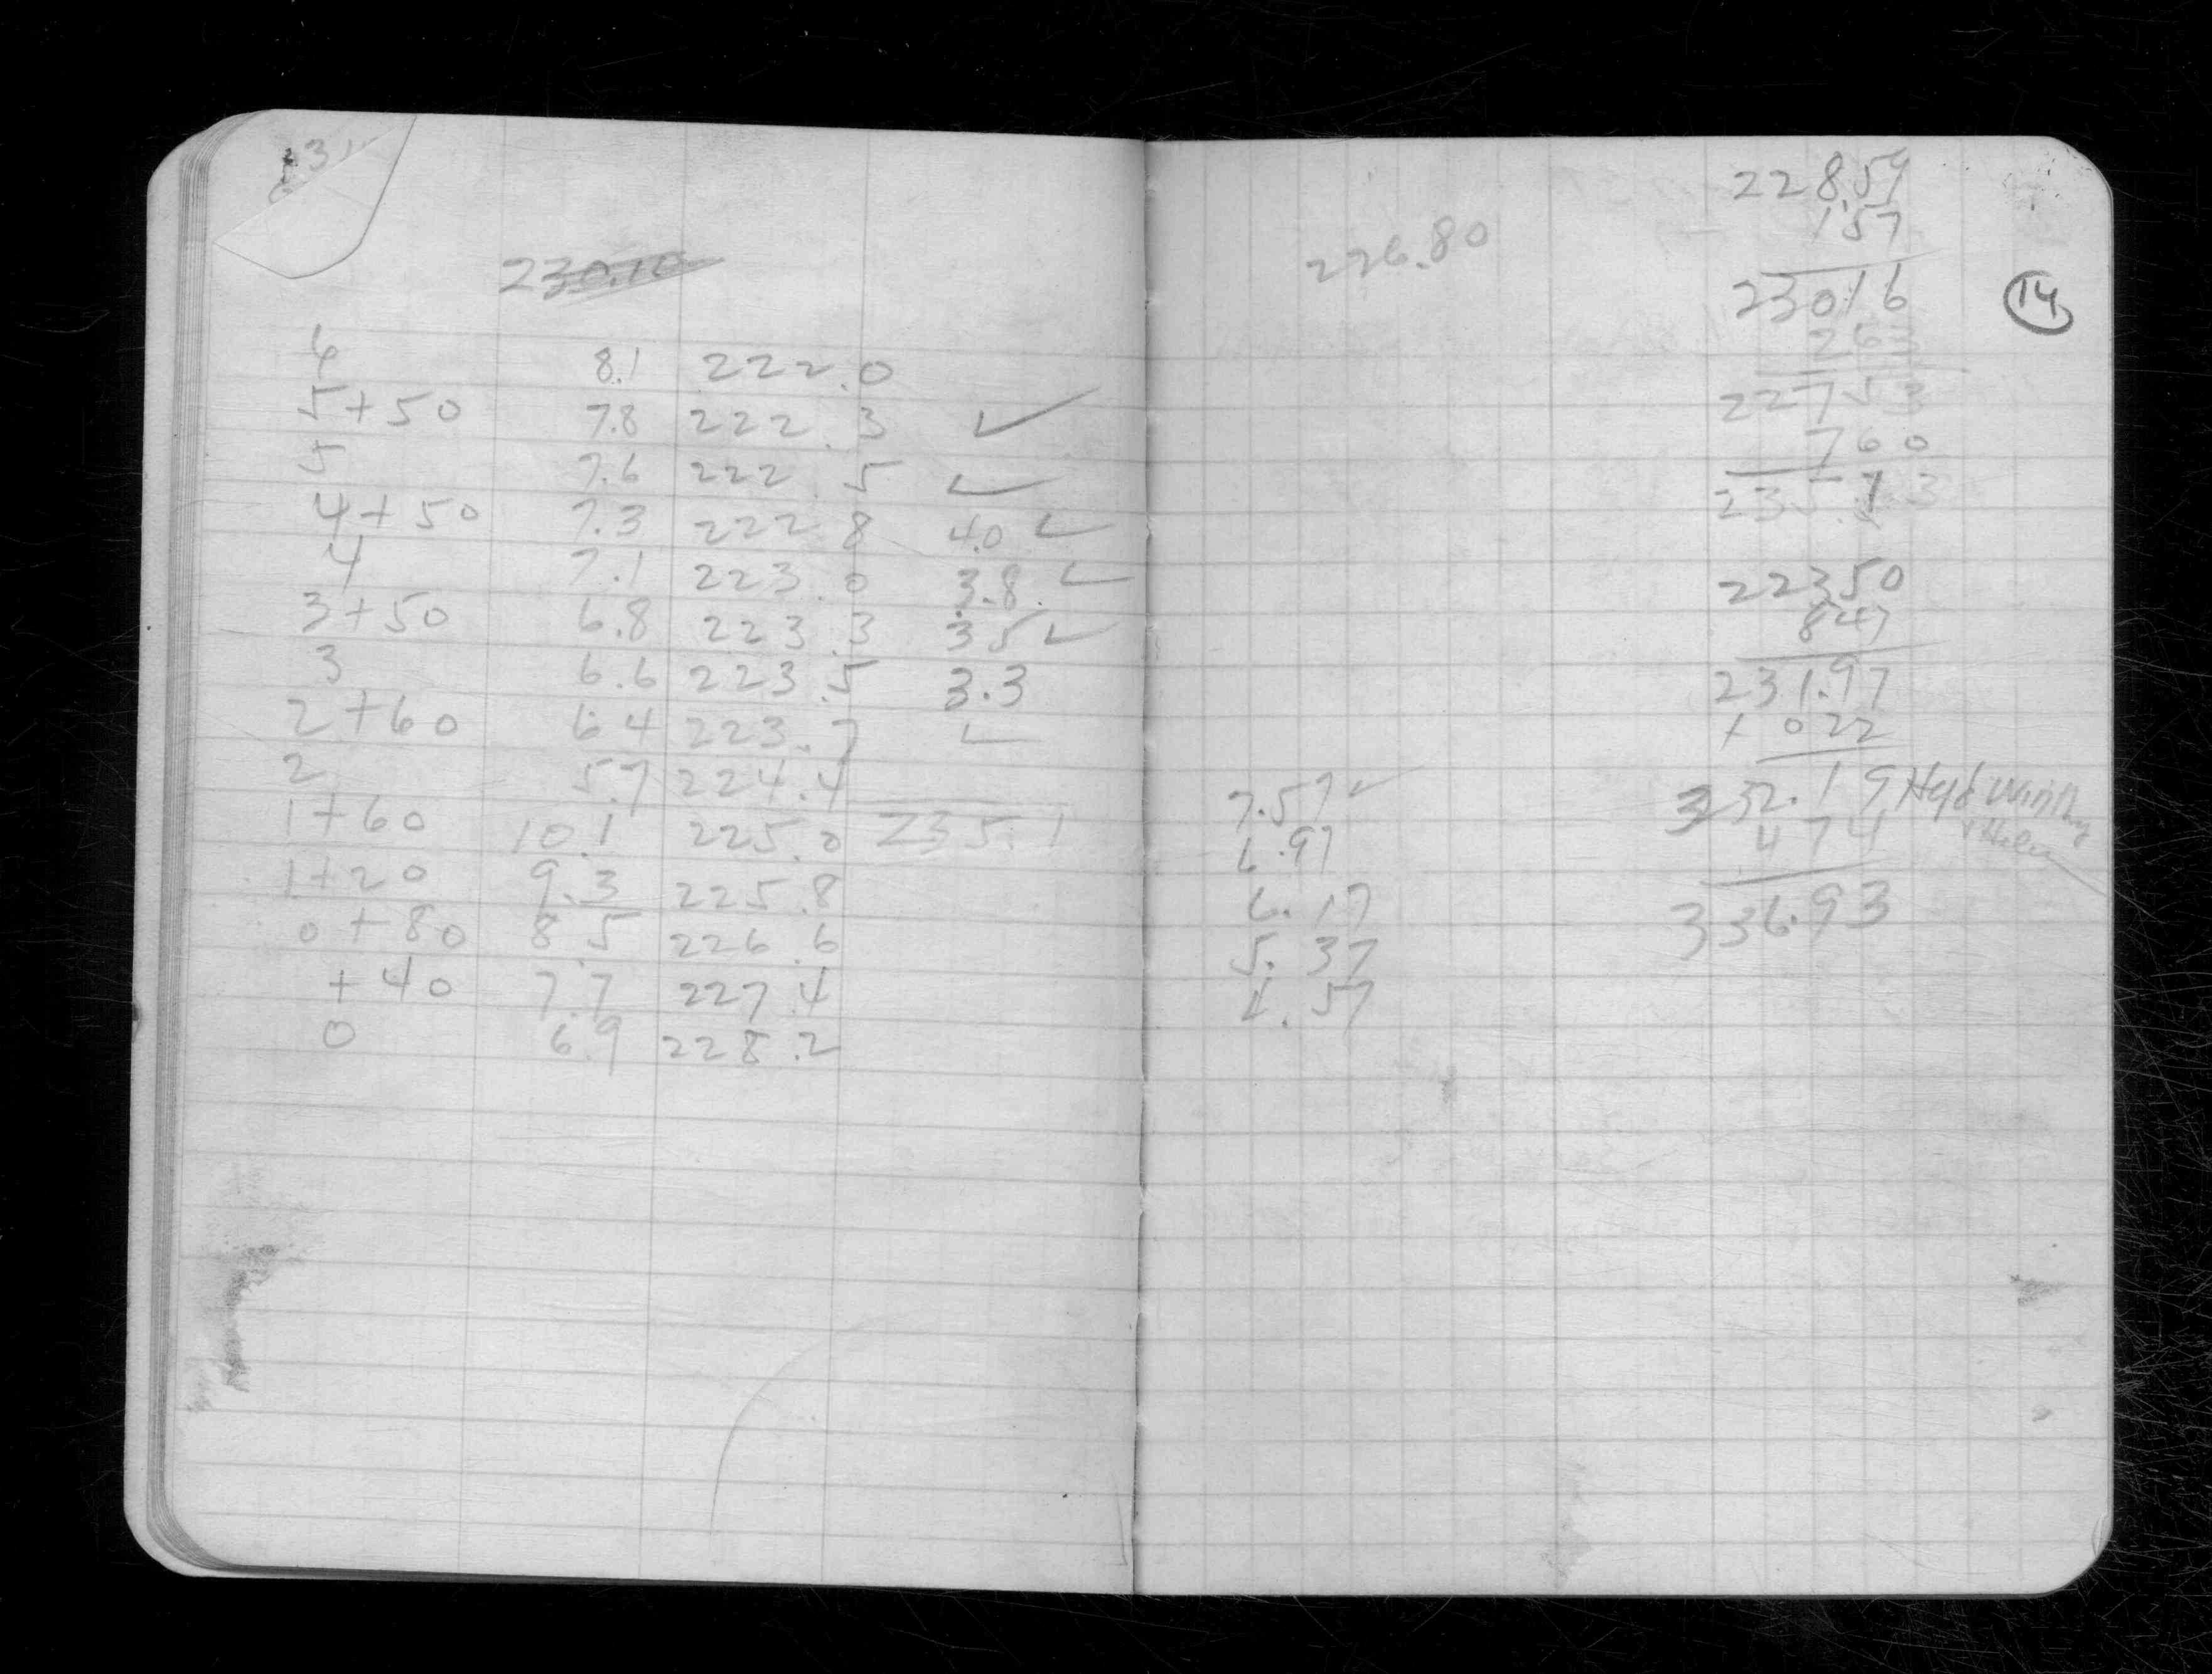 230.10
6 8.1 222.0
5+50 7.8 222.3 ✓
5 7.6 222.5 ✓
4+50 7.3 222.8 4.0 ✓
4 7.1 223.0 3.8 ✓
3+50 6.8 223.3 3.5 ✓
3 6.6 223.5 3.3
2+60 6.4 223.7 ✓
2 5.7 224.4
1+60 10.1 225.0 235.1
1+20 9.3 225.8
0+80 8.5 226.6
+40 7.7 227.4
0 6.9 228.2
226.80
7.57 ✓
6.97
6.17
5.37
4.57
228.59
157
23016
263
22753
760
235.13
14
22350
847
231.97
+ 022
232.19 Hyd
474
336.93